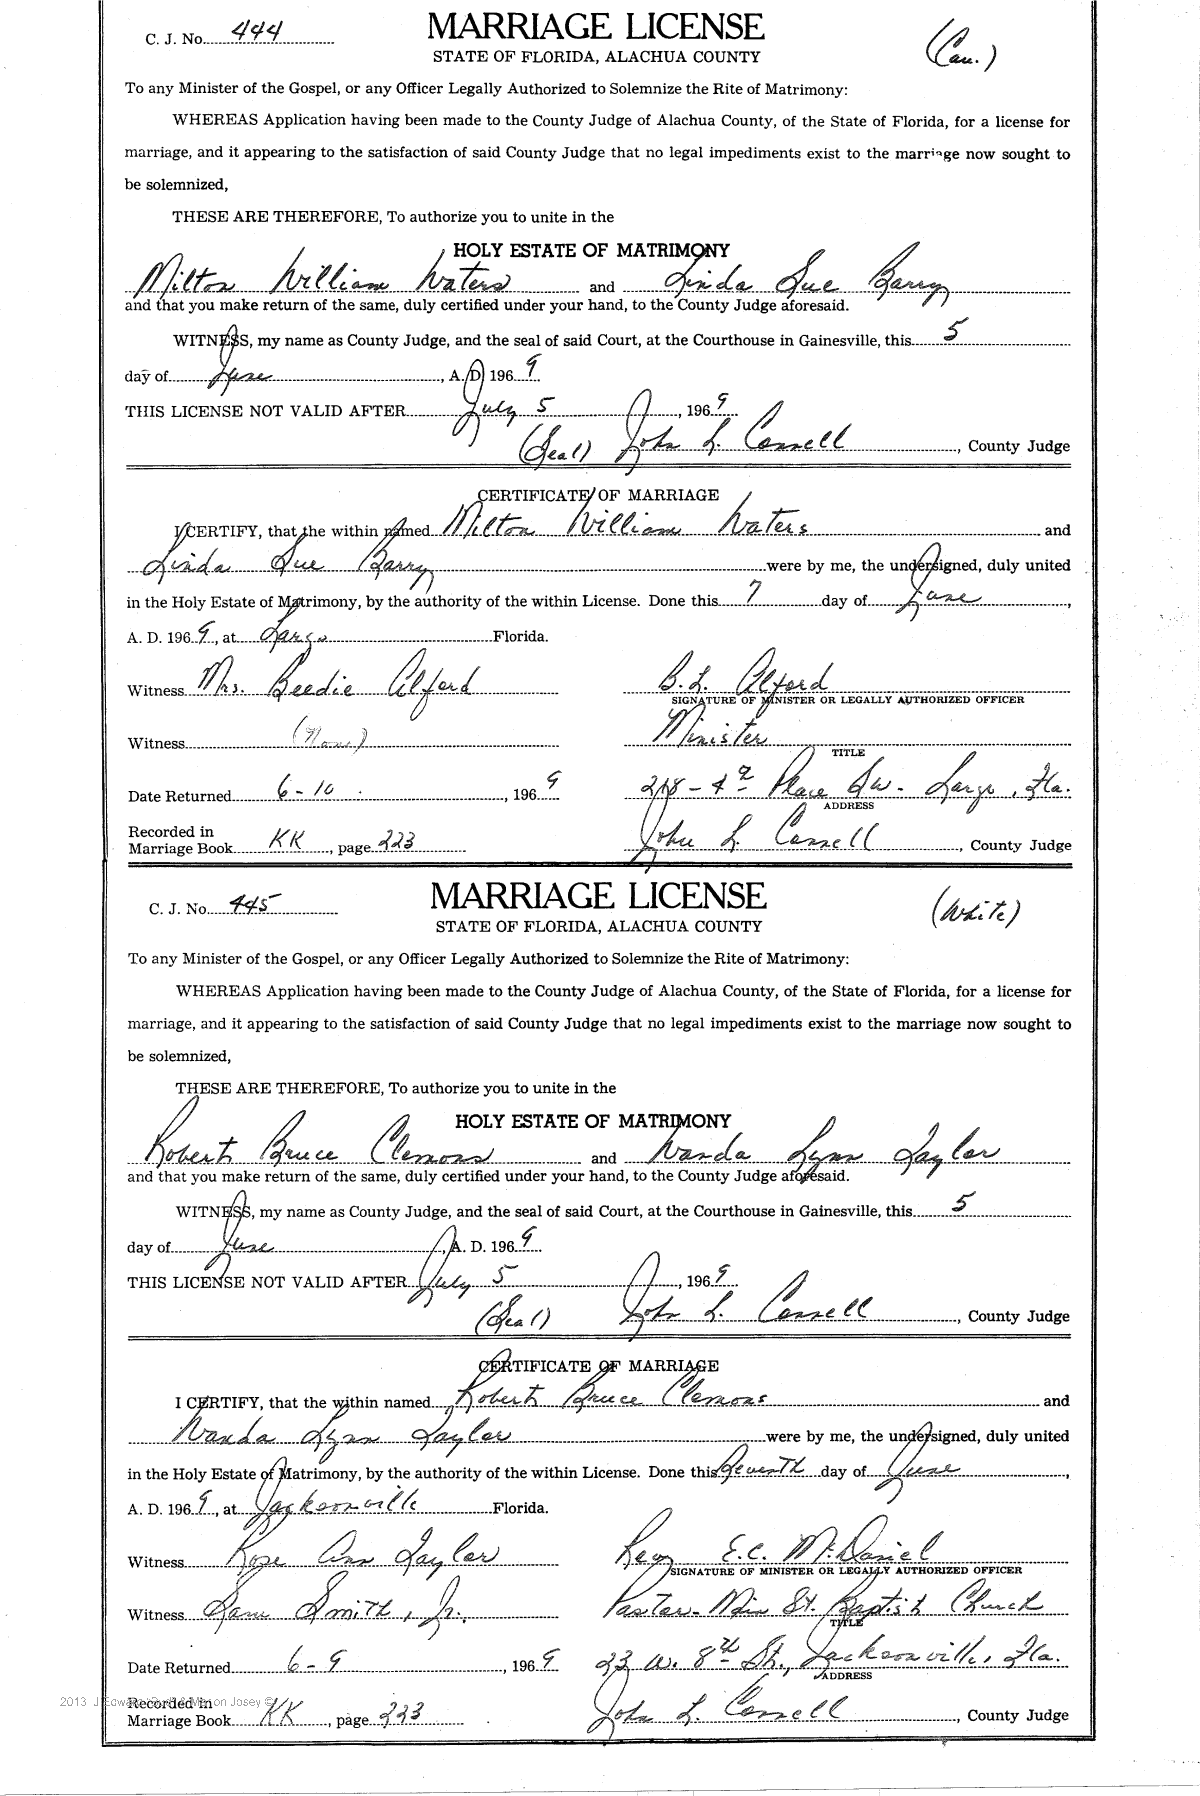 C. J. No. 444
MARRIAGE LICENSE
(Cau.)
STATE OF FLORIDA, ALACHUA COUNTY
To any Minister of the Gospel, or any Officer Legally Authorized to Solemnize the Rite of Matrimony:
WHEREAS Application having been made to the County Judge of Alachua County, of the State of Florida, for a license for
marriage, and it appearing to the satisfaction of said County Judge that no legal impediments exist to the marriage now sought to
be solemnized,
THESE ARE THEREFORE, To authorize you to unite in the
HOLY ESTATE OF MATRIMONY
Milton William Waters and Linda Sue Barry
and that you make return of the same, duly certified under your hand, to the County Judge aforesaid.
WITNESS, my name as County Judge, and the seal of said Court, at the Courthouse in Gainesville, this 5
day of June, A. D. 1969
THIS LICENSE NOT VALID AFTER July 5, 1969
(Seal) John L. Connell, County Judge
CERTIFICATE OF MARRIAGE
I CERTIFY, that the within named Milton William Waters and
Linda Sue Barry were by me, the undersigned, duly united
in the Holy Estate of Matrimony, by the authority of the within License. Done this 7 day of June,
A. D. 1969, at Largo Florida.
Witness Mrs. Beedie Alford B. L. Alford
SIGNATURE OF MINISTER OR LEGALLY AUTHORIZED OFFICER
Witness (None) Minister
TITLE
Date Returned 6-10, 1969 218-4th Place Sw. Largo, Fla.
ADDRESS
Recorded in
Marriage Book KK, page 223 John L. Connell, County Judge
C. J. No. 445
MARRIAGE LICENSE
(White)
STATE OF FLORIDA, ALACHUA COUNTY
To any Minister of the Gospel, or any Officer Legally Authorized to Solemnize the Rite of Matrimony:
WHEREAS Application having been made to the County Judge of Alachua County, of the State of Florida, for a license for
marriage, and it appearing to the satisfaction of said County Judge that no legal impediments exist to the marriage now sought to
be solemnized,
THESE ARE THEREFORE, To authorize you to unite in the
HOLY ESTATE OF MATRIMONY
Robert Bruce Clemons and Wanda Lynn Taylor
and that you make return of the same, duly certified under your hand, to the County Judge aforesaid.
WITNESS, my name as County Judge, and the seal of said Court, at the Courthouse in Gainesville, this 5
day of June, A. D. 1969
THIS LICENSE NOT VALID AFTER July 5, 1969
(Seal) John L. Connell, County Judge
CERTIFICATE OF MARRIAGE
I CERTIFY, that the within named Robert Bruce Clemons and
Wanda Lynn Taylor were by me, the undersigned, duly united
in the Holy Estate of Matrimony, by the authority of the within License. Done this Seventh day of June,
A. D. 1969, at Jacksonville Florida.
Witness Rose Ann Taylor E. C. McDaniel
SIGNATURE OF MINISTER OR LEGALLY AUTHORIZED OFFICER
Witness Sam Smith, Jr. Pastor- Main St. Baptist Church
TITLE
Date Returned 6-9, 1969 23 W. 8th St., Jacksonville, Fla.
ADDRESS
2013 Josey ©
Recorded in
Marriage Book KK, page 223 John L. Connell, County Judge